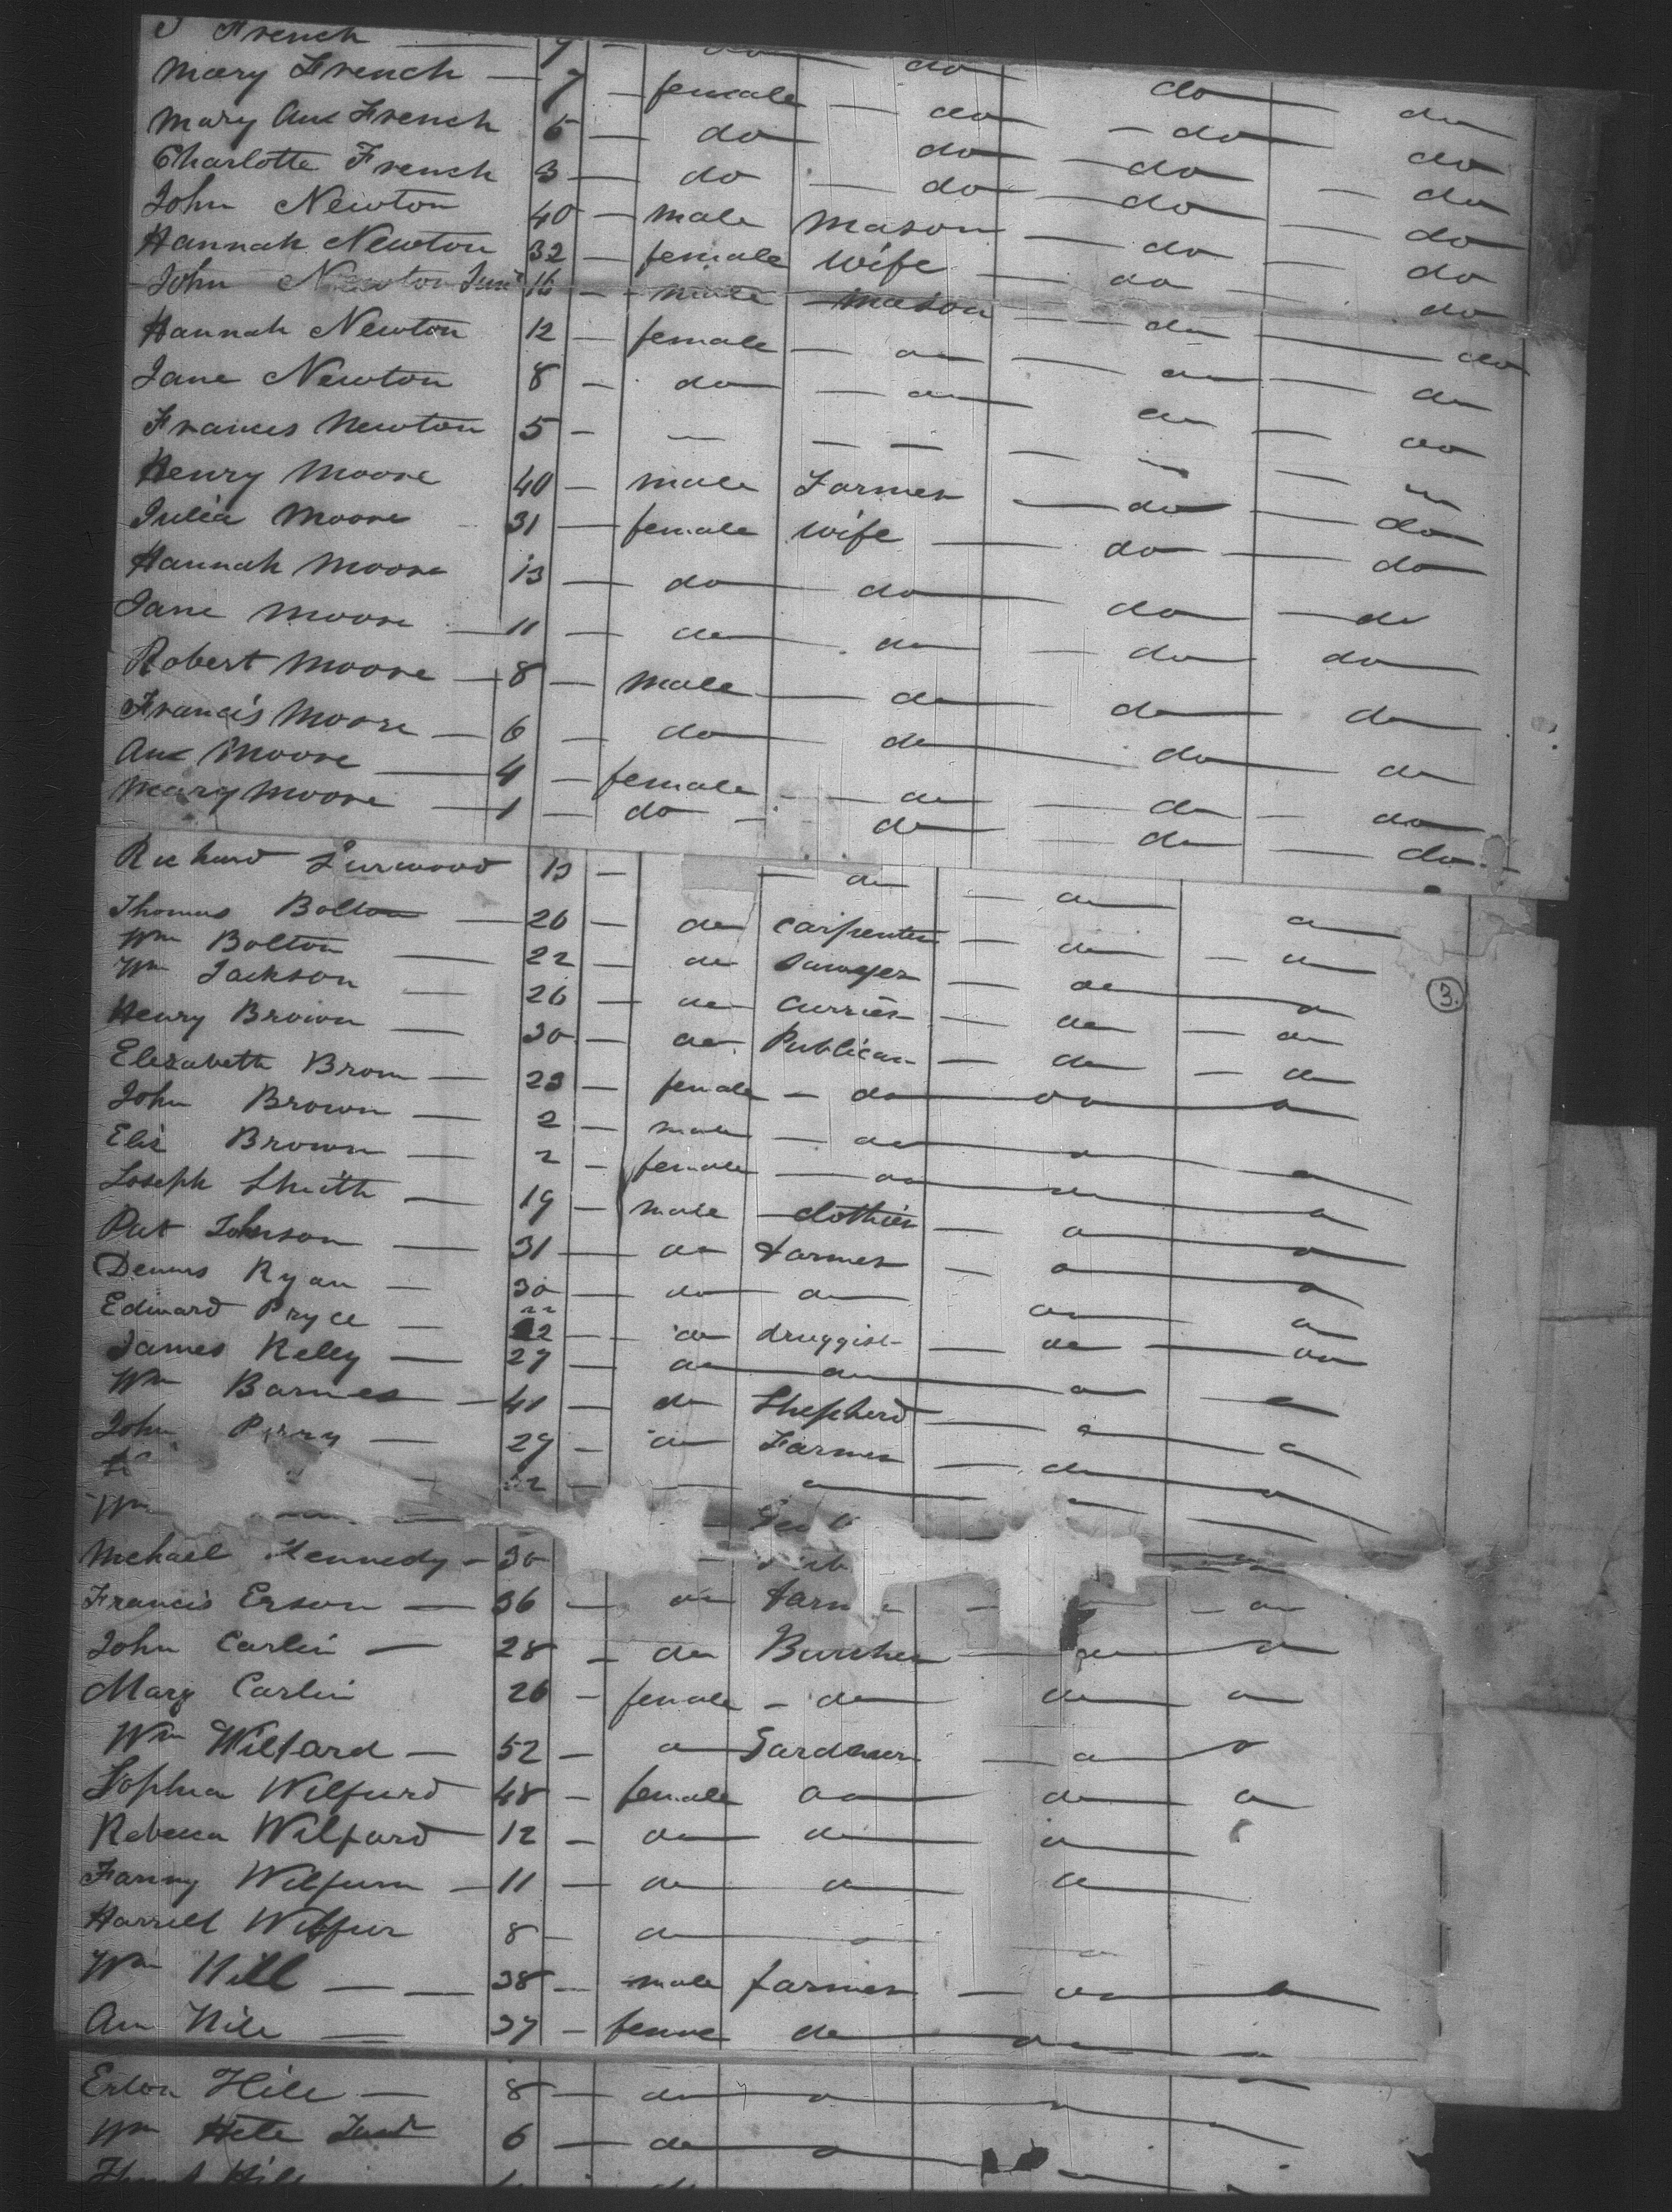 J French — 9 — do do do do
Mary French — 7 — female — do — do do
Mary Ann French 5 — do do — do — do
Charlotte French 3 — do — do — do — do
John Newton 40 — male Mason — do — do
Hannah Newton 32 — female Wife — do — do
John Newton Junr 16 — male Mason — do — do
Hannah Newton 12 — female — do — do — do
Jane Newton 8 — do — do do — do
Frances Newton 5 — — — — — —
Henry Moore 40 — male Farmer — do — do
Julia Moore 31 — female Wife — do — do
Hannah Moore 13 — do do do — do
Jane Moore — 11 — do do — do do
Robert Moore — 8 — male — do do do
Francis Moore — 6 — do do do do
Ann Moore — 4 — female — do — do — do
Mary Moore — 1 — do — do — do — do
Richard 13 — — do — do do
Thomas Bolton — 26 — do Carpenter — do — do
Wm Bolton — 22 — do Sawyer — do do
Wm Jackson — 26 — do Currier — do — do
Henry Brown — 30 — do Publican — do — do
Elizabeth Brown — 23 — female — do do do
John Brown — 2 — male — do do do
Eliz Brown — 2 — female — do do do
Joseph 19 — male clothier — do do
Pat Johnson — 31 — do farmer — do do
Dennis Ryan — 30 — do do do do
Edward Pryce — 22 — do druggist — do — do
James Reley — 27 — do do do — do
Wm Barnes — 41 — do Shepherd — do do
John Perry — 29 — do Farmer — do do
22 — — do
Wm
Michael Kennedy — 30
Francis Erson — 36 — do farm — — do
John Carlin — 28 — do Butcher — do do
Mary Carlin 26 — female — do do do
Wm Wilfard — 52 — do Gardener — do do
Sophia Wilfurd 48 — female do do do
Rebecca Wilfard 12 — do do do
Fanny Wilfurn — 11 — do do do
Harriet Wilfur 8 — do do do
Wm Hill — 38 — male farmer — do do
Ann Hill — 37 — female do do do
Hill — 8 — do do
Wm Hill Junr 6 — do do
Hill